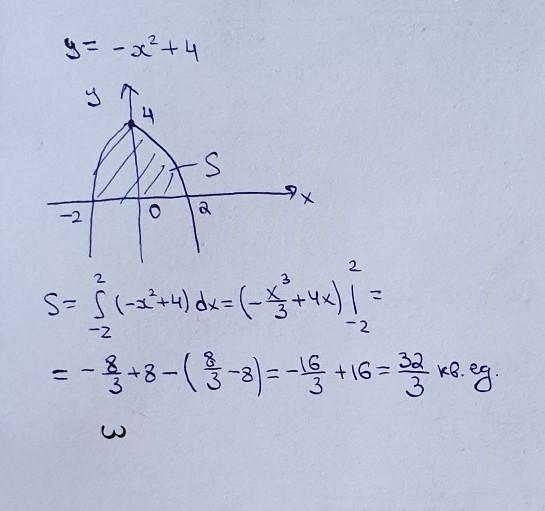 y = -x² + 4
y
4
S
-2 0 2 x
S = ∫₋₂² (-x²+4) dx = (-x³/3 + 4x) |₋₂² =
= -8/3 + 8 - (8/3 - 8) = -16/3 + 16 = 32/3 кв. ед.
ω